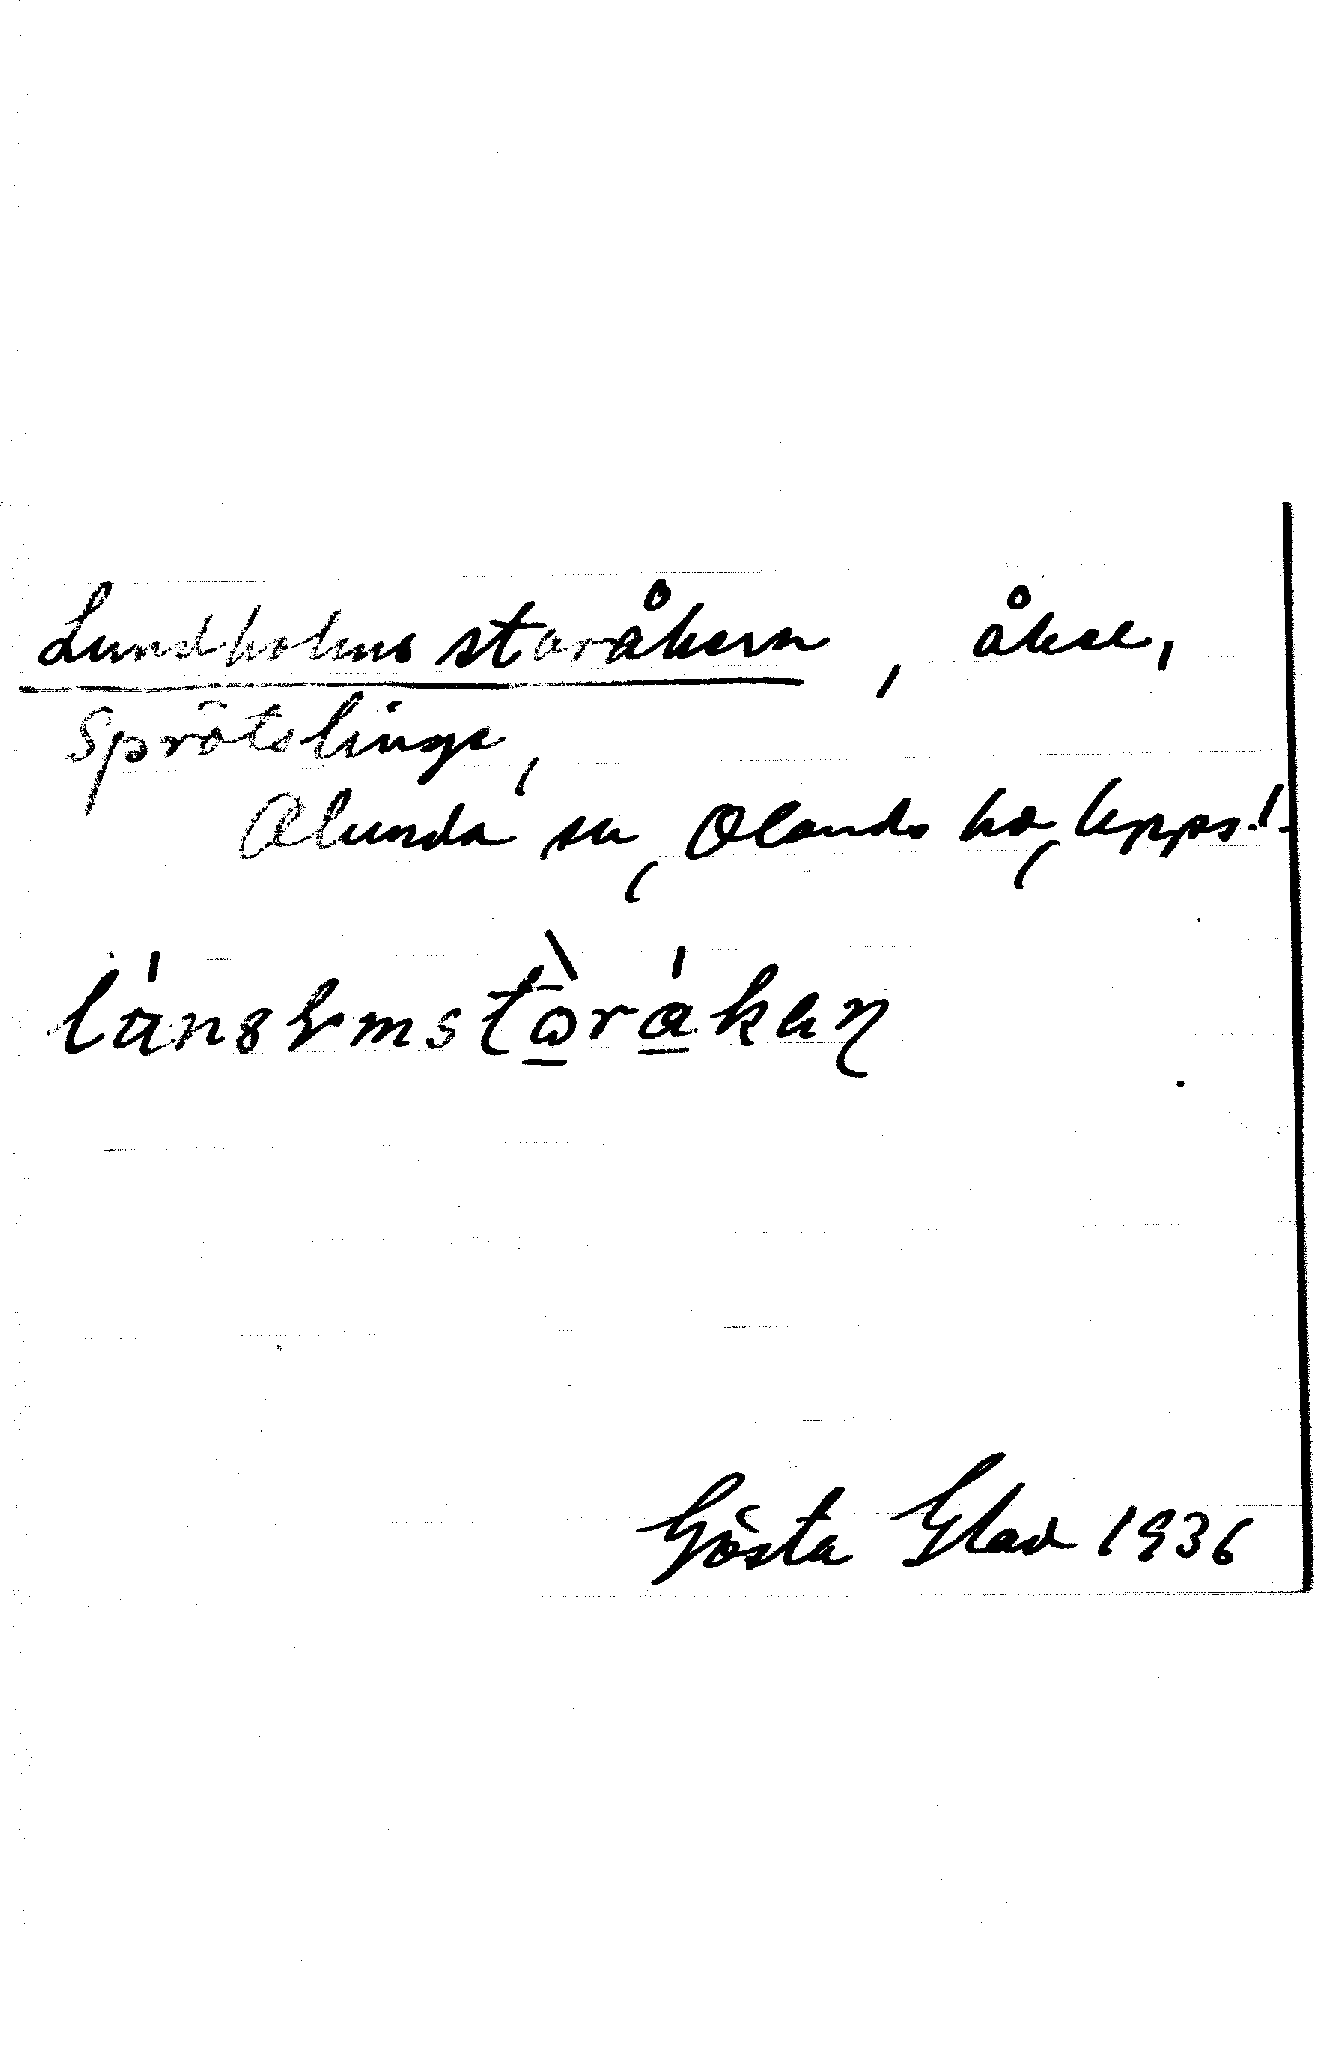 Lundholms storåkern, åker,
Sprötslinge,
Alunda sn, Olands hd, Upps. l.
lánshmstòrákeɳ
Gösta Glad 1936